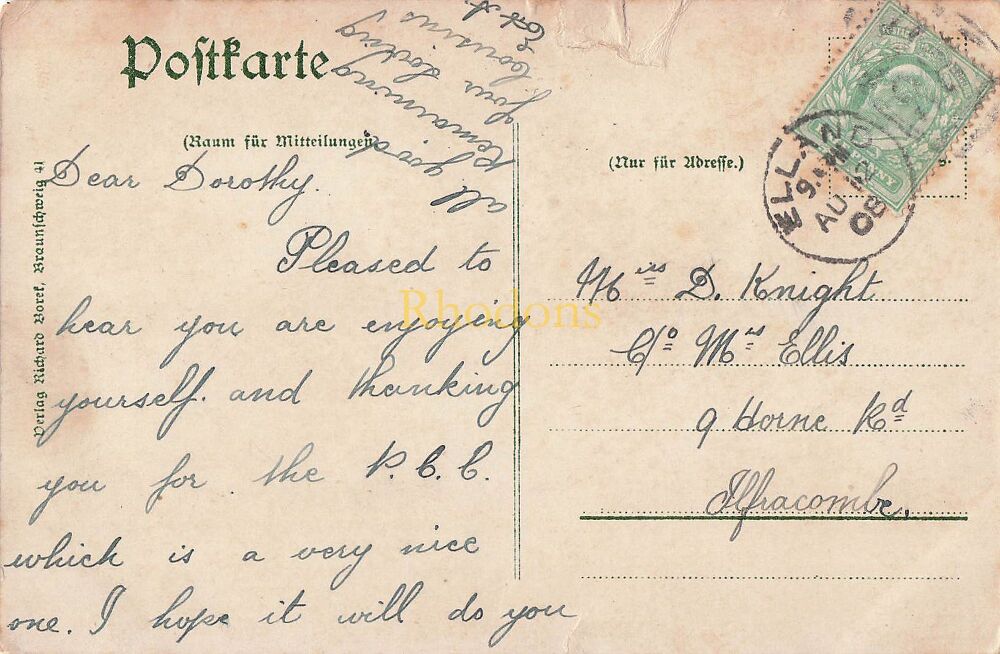 Postkarte
(Raum für Mitteilungen)
Dear Dorothy.
Pleased to
hear you are enjoying
yourself. and thanking
you for the P.C.C.
which is a very nice
one. I hope it will do you
all good
Remaining
your loving
cousin
(Nur für Adresse.)
Miss D. Knight.
C/o Mrs Ellis
9 Horne Rd
Ilfracombe.
Verlag Richard Borek, Braunschweig 41
AU 12
08
Rhodons